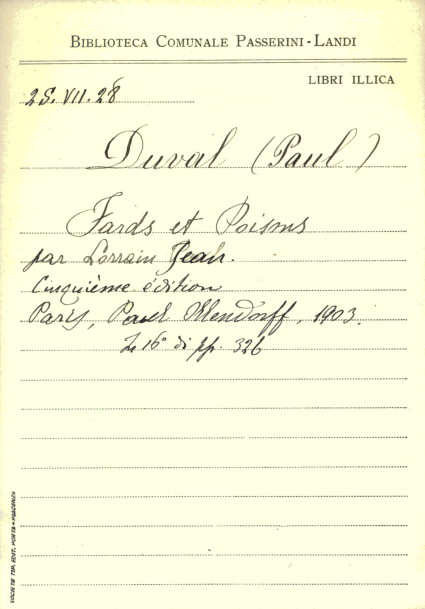 BIBLIOTECA COMUNALE PASSERINI-LANDI
LIBRI ILLICA
25.VII.28
Duval (Paul)
Fards et Poisons
par Lorrain Jean.
Cinquième édition
Paris, Paul Ollendorff, 1903.
In 16° di pp. 326
SOCIETÀ TIP. EDIT. PORTA - PIACENZA